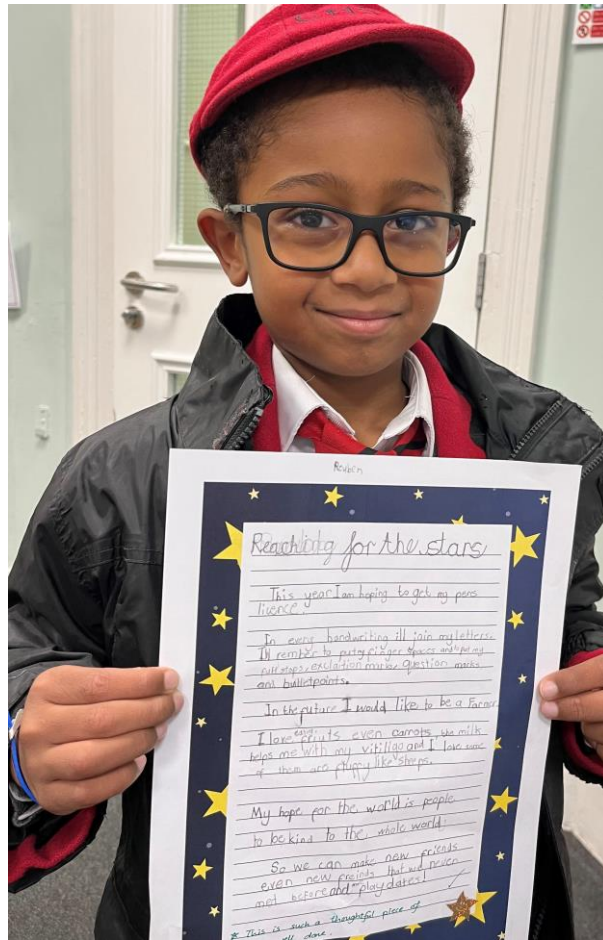 Reubin
Reaching for the stars
This year I am hoping to get my pens
licence.
In every handwriting ill join my letters.
I'll rember to put finger spaces and put my
full stops, exclation marks question marks
and bulletpoints.
In the future I would like to be a Farmer
I love fruits even carrots, the milk
helps me with my vitiligo and I love some
of them are fluffy like sheeps.
My hope for the world is people
to be kind to the whole world.
So we can make new friends
even new freinds that we never
met before and play dates!
* This is such a thoughtful piece of
well done.